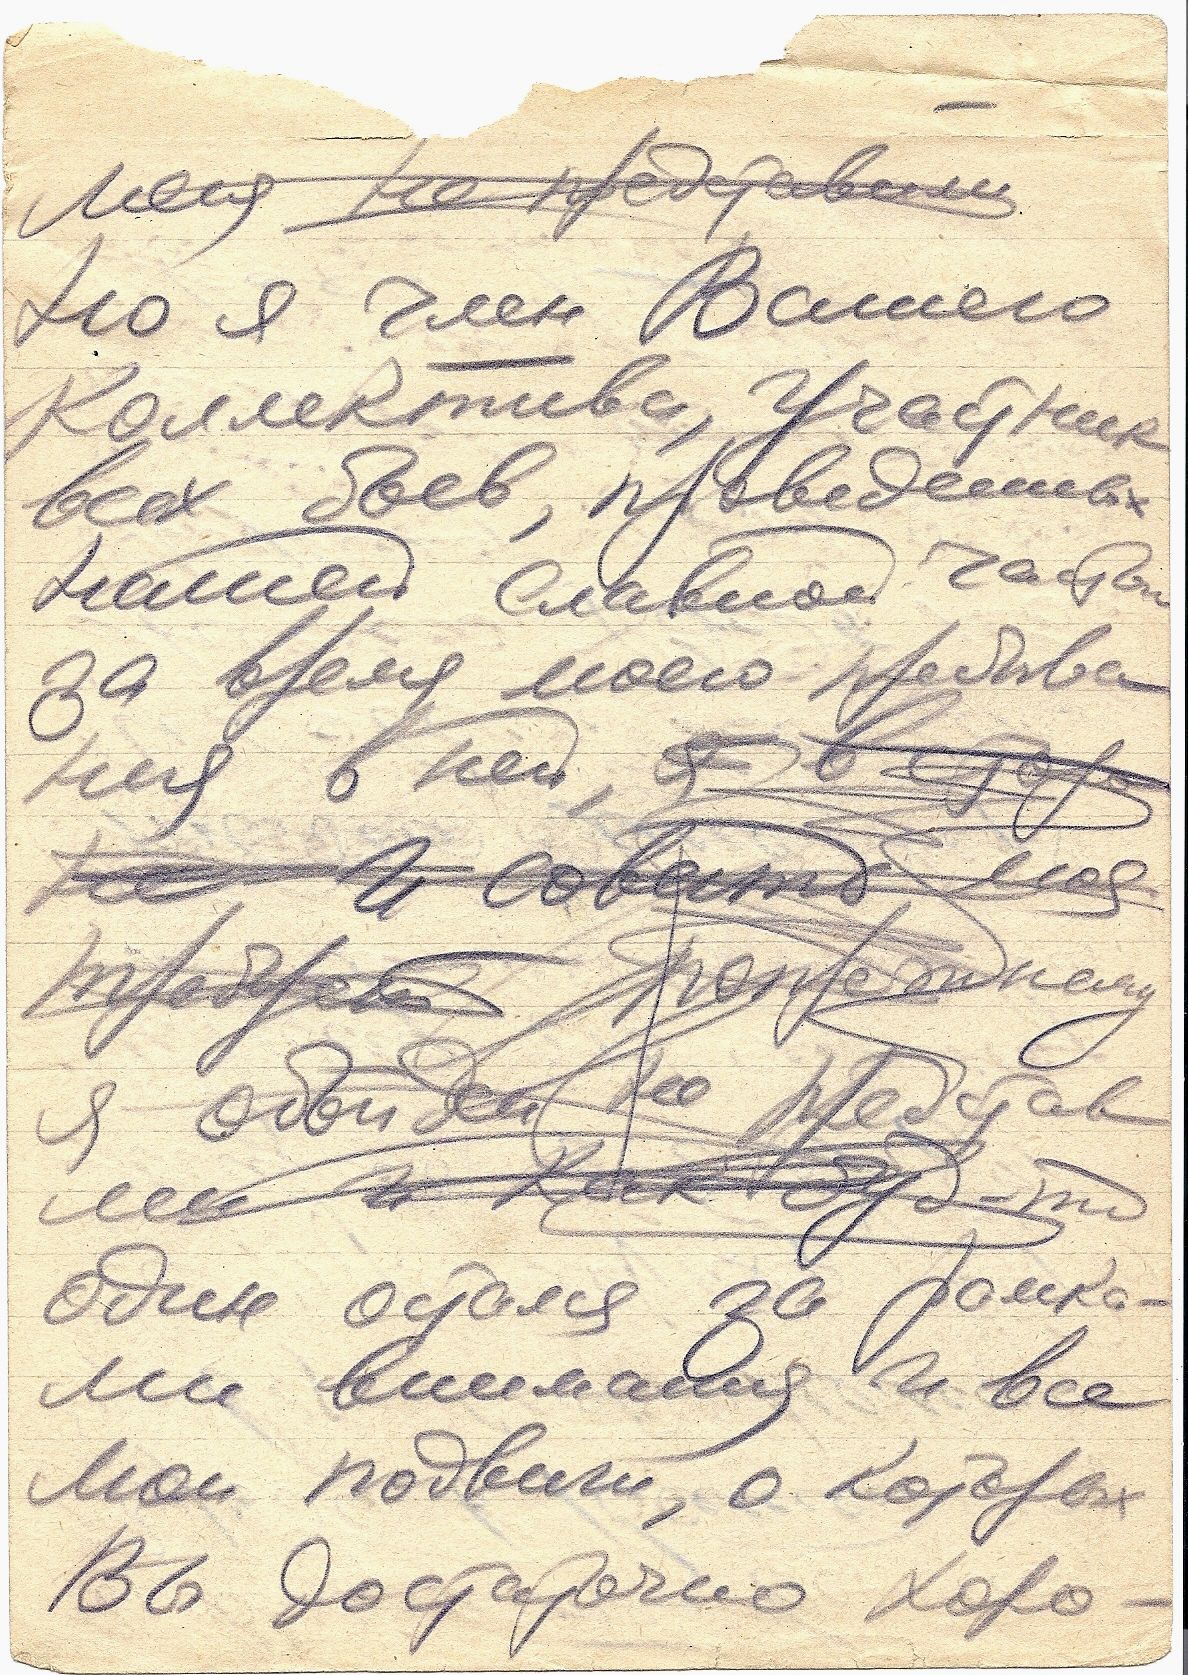 меня не представили
Но я член Вашего
Коллектива, Участник
всех боев, проведенных
нашей Славной части
за время моего пребыва
ния в ней, я в стороне
и совать моя
требует
я обойден не представ
лен и как буд-то
один остался за рамка-
ми внимания и все
мои подвиги, о которых
Вы достаточно хоро-